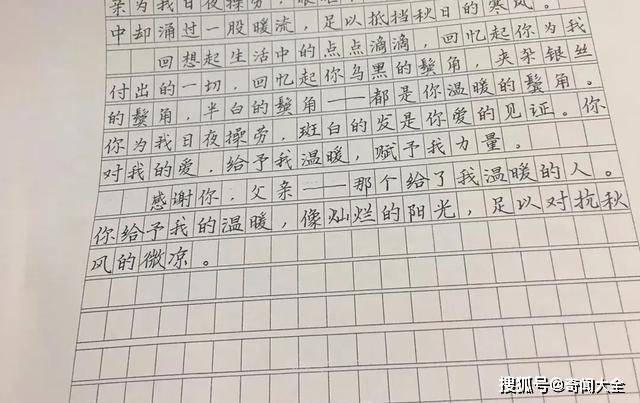 亲为我日夜操劳，眼
中却涌过一股暖流，足以抵挡秋日的寒风。
回想起生活中的点点滴滴，回忆起你为我
付出的一切，回忆起你乌黑的鬓角，夹杂银丝
的鬓角，半白的鬓角——都是你温暖的鬓角。
你为我日夜操劳，斑白的发是你爱的见证。你
对我的爱，给予我温暖，赋予我力量。
感谢你，父亲——那个给了我温暖的人。
你给予我的温暖，像灿烂的阳光，足以对抗秋
风的微凉。
搜狐号@奇闻大全